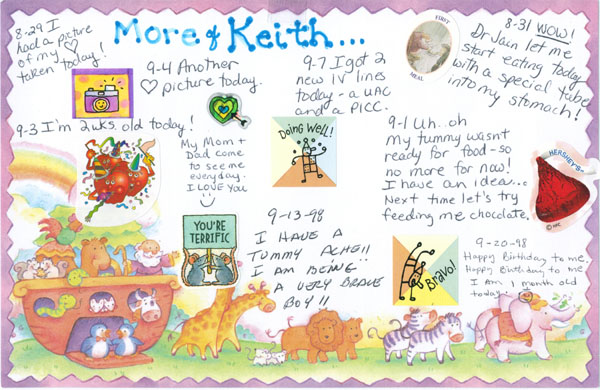 More of Keith...
8-29 I
had a picture
of my ♡
taken today!
9-4 Another
♡ picture today.
9-7 I got 2
new IV lines
today - a UAC
and a PICC.
FIRST
MEAL
8-31 WOW!
Dr Jain let me
start eating today
with a special tube
into my stomach!
9-3 I'm 2 wks. old today!
My Mom +
Dad come
to see me
everyday.
I LOVE YOU
Doing Well!
9-1 Uh..oh
My tummy wasnt
ready for food - so
no more for now!
I have an idea...
Next time let's try
feeding me chocolate.
HERSHEY'S
YOU'RE
TERRIFIC
9-13-98
I HAVE A
TUMMY ACHE!!
I AM BEING
A VERY BRAVE
BOY!!
Bravo!
9-20-98
Happy Birthday to me,
Happy Birthday to me
I am 1 month old
today